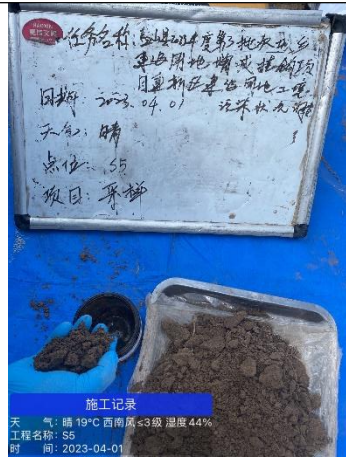 任务名称:盐山县2024年度第3批次城乡
建设用地增减挂钩项
目建新区建设用地土壤
污染状况调
日期:2023.04.01
天气:晴
点位:S5
项目:采样
施工记录
天 气:晴 19°C 西南风≤3级 湿度44%
工程名称:S5
时 间:2023-04-01